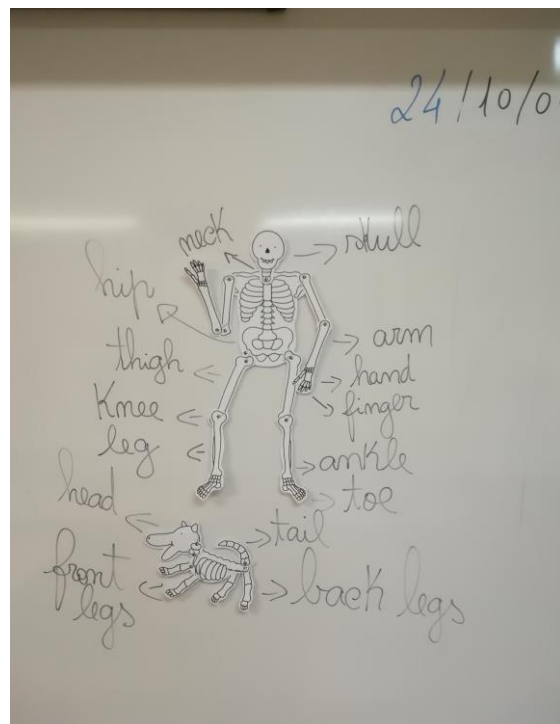 24/10/0
neck
skull
hip
arm
thigh
hand
Knee
finger
leg
ankle
head
toe
tail
front
legs
back legs